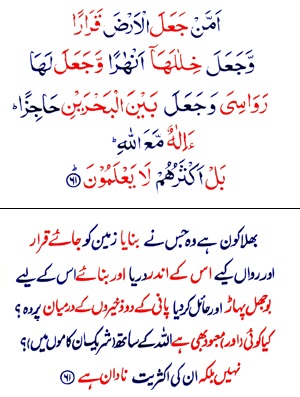 اَمَّنْ جَعَلَ الْاَرْضَ قَرَارًا
وَّجَعَلَ خِلٰلَهَاۤ اَنْهٰرًا وَّجَعَلَ لَهَا
رَوَاسِیَ وَجَعَلَ بَیْنَ الْبَحْرَیْنِ حَاجِزًا ؕ
ءَاِلٰهٌ مَّعَ اللّٰهِ ؕ
بَلْ اَکْثَرُهُمْ لَا یَعْلَمُوْنَ ؕ ﴿۶۱﴾
بھلا کون ہے وہ جس نے بنایا زمین کو جائے قرار
اور رواں کیے اس کے اندر دریا اور بنائے اس کے لیے
بوجھل پہاڑ اور حائل کردیا پانی کے دو ذخیروں کے درمیان پردہ ؟
کیا کوئی اور معبود بھی ہے اللہ کے ساتھ (شریک ان کاموں میں)؟
نہیں بلکہ ان کی اکثریت نادان ہے ﴿۶۱﴾